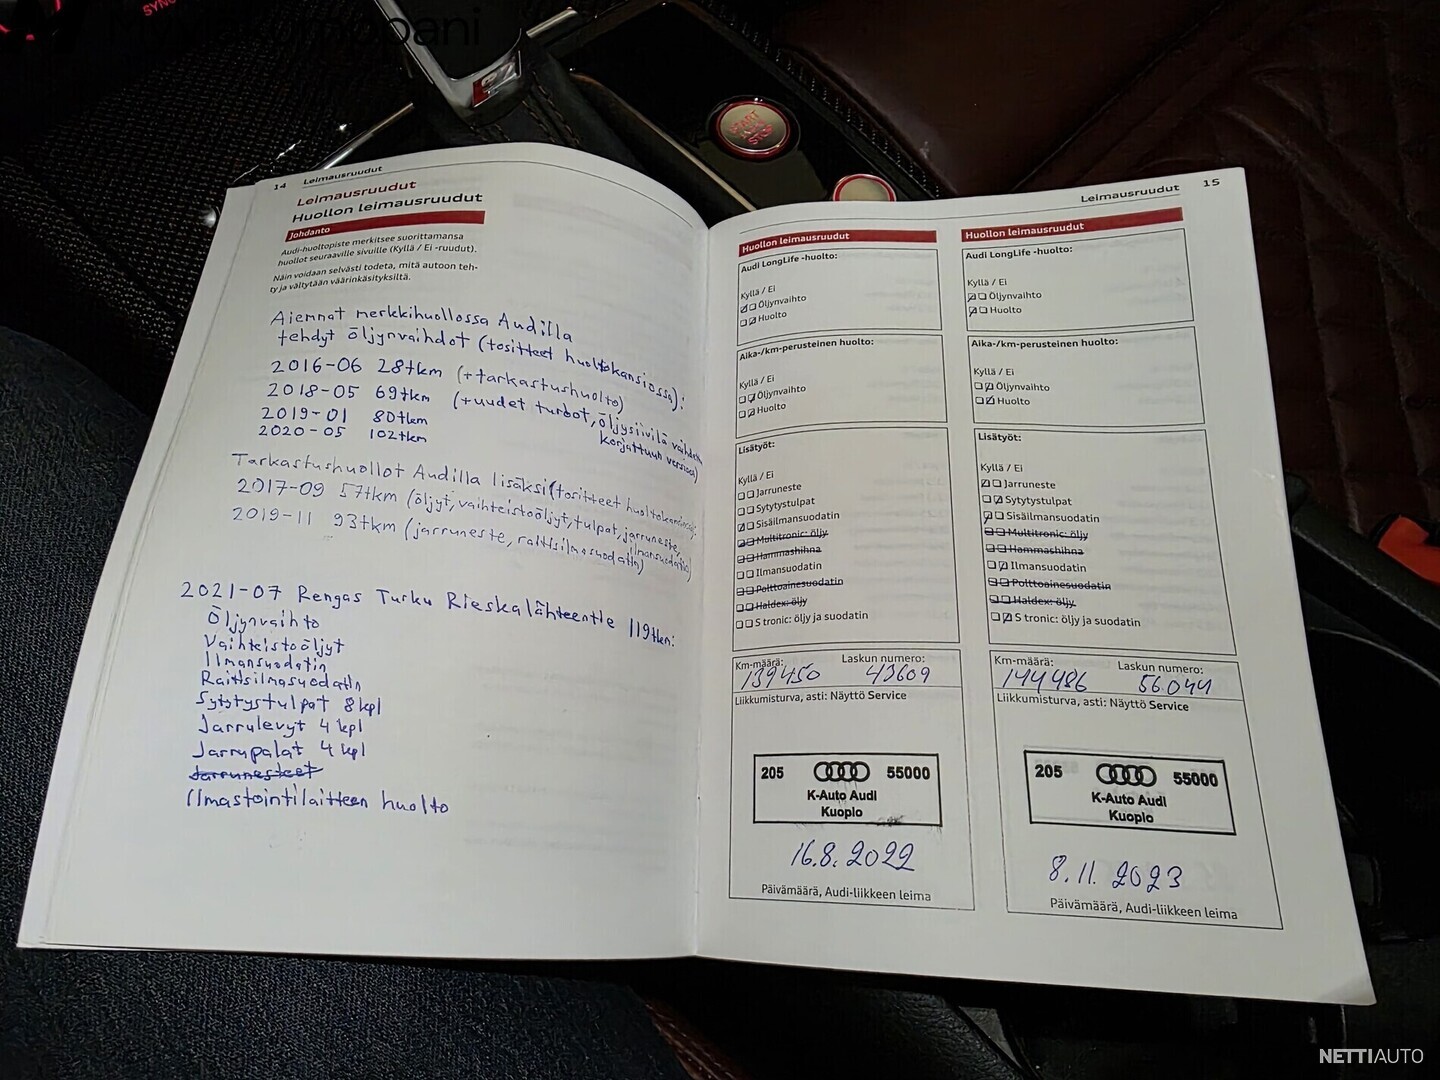 START
STOP
14 Leimausruudut
Leimausruudut
Huollon leimausruudut
Johdanto
Audi-huoltopiste merkitsee suorittamansa
huollot seuraaville sivuille (Kyllä / Ei -ruudut).
Näin voidaan selvästi todeta, mitä autoon teh-
ty ja vältytään väärinkäsityksiltä.
Aiemmat merkkihuollossa Audilla
tehdyt öljynvaihdot (tositteet huoltokansiossa):
2016-06 28tkm (+tarkastushuolto)
2018-05 69tkm (+uudet turbot, öljysiivilä vaihdettu
korjattuun versioon)
2019-01 80tkm
2020-05 102tkm
Tarkastushuollot Audilla lisäksi (tositteet huoltokansiossa):
2017-09 57tkm (öljyt, vaihteistoöljyt, tulpat, jarruneste,
ilmansuodatin)
2019-11 93tkm (jarruneste, raitisilmasuodatin)
2021-07 Rengas Turku Rieskalähteentie 119tkm:
Öljynvaihto
Vaihteistoöljyt
Ilmansuodatin
Raitisilmasuodatin
Sytytystulpat 8 kpl
Jarrulevyt 4 kpl
Jarrupalat 4 kpl
Jarrunesteet
Ilmastointilaitteen huolto
Leimausruudut 15
Huollon leimausruudut
Audi LongLife -huolto:
Kyllä / Ei
Öljynvaihto
Huolto
Aika-/km-perusteinen huolto:
Kyllä / Ei
Öljynvaihto
Huolto
Lisätyöt:
Kyllä / Ei
Jarruneste
Sytytystulpat
Sisäilmansuodatin
Multitronic: öljy
Hammashihna
Ilmansuodatin
Polttoainesuodatin
Haldex: öljy
S tronic: öljy ja suodatin
Km-määrä: Laskun numero:
139450 43609
Liikkumisturva, asti: Näyttö Service
205 55000
K-Auto Audi
Kuopio
16.8.2022
Päivämäärä, Audi-liikkeen leima
Huollon leimausruudut
Audi LongLife -huolto:
Kyllä / Ei
Öljynvaihto
Huolto
Aika-/km-perusteinen huolto:
Kyllä / Ei
Öljynvaihto
Huolto
Lisätyöt:
Kyllä / Ei
Jarruneste
Sytytystulpat
Sisäilmansuodatin
Multitronic: öljy
Hammashihna
Ilmansuodatin
Polttoainesuodatin
Haldex: öljy
S tronic: öljy ja suodatin
Km-määrä: Laskun numero:
144486 56044
Liikkumisturva, asti: Näyttö Service
205 55000
K-Auto Audi
Kuopio
8.11.2023
Päivämäärä, Audi-liikkeen leima
NETTIAUTO